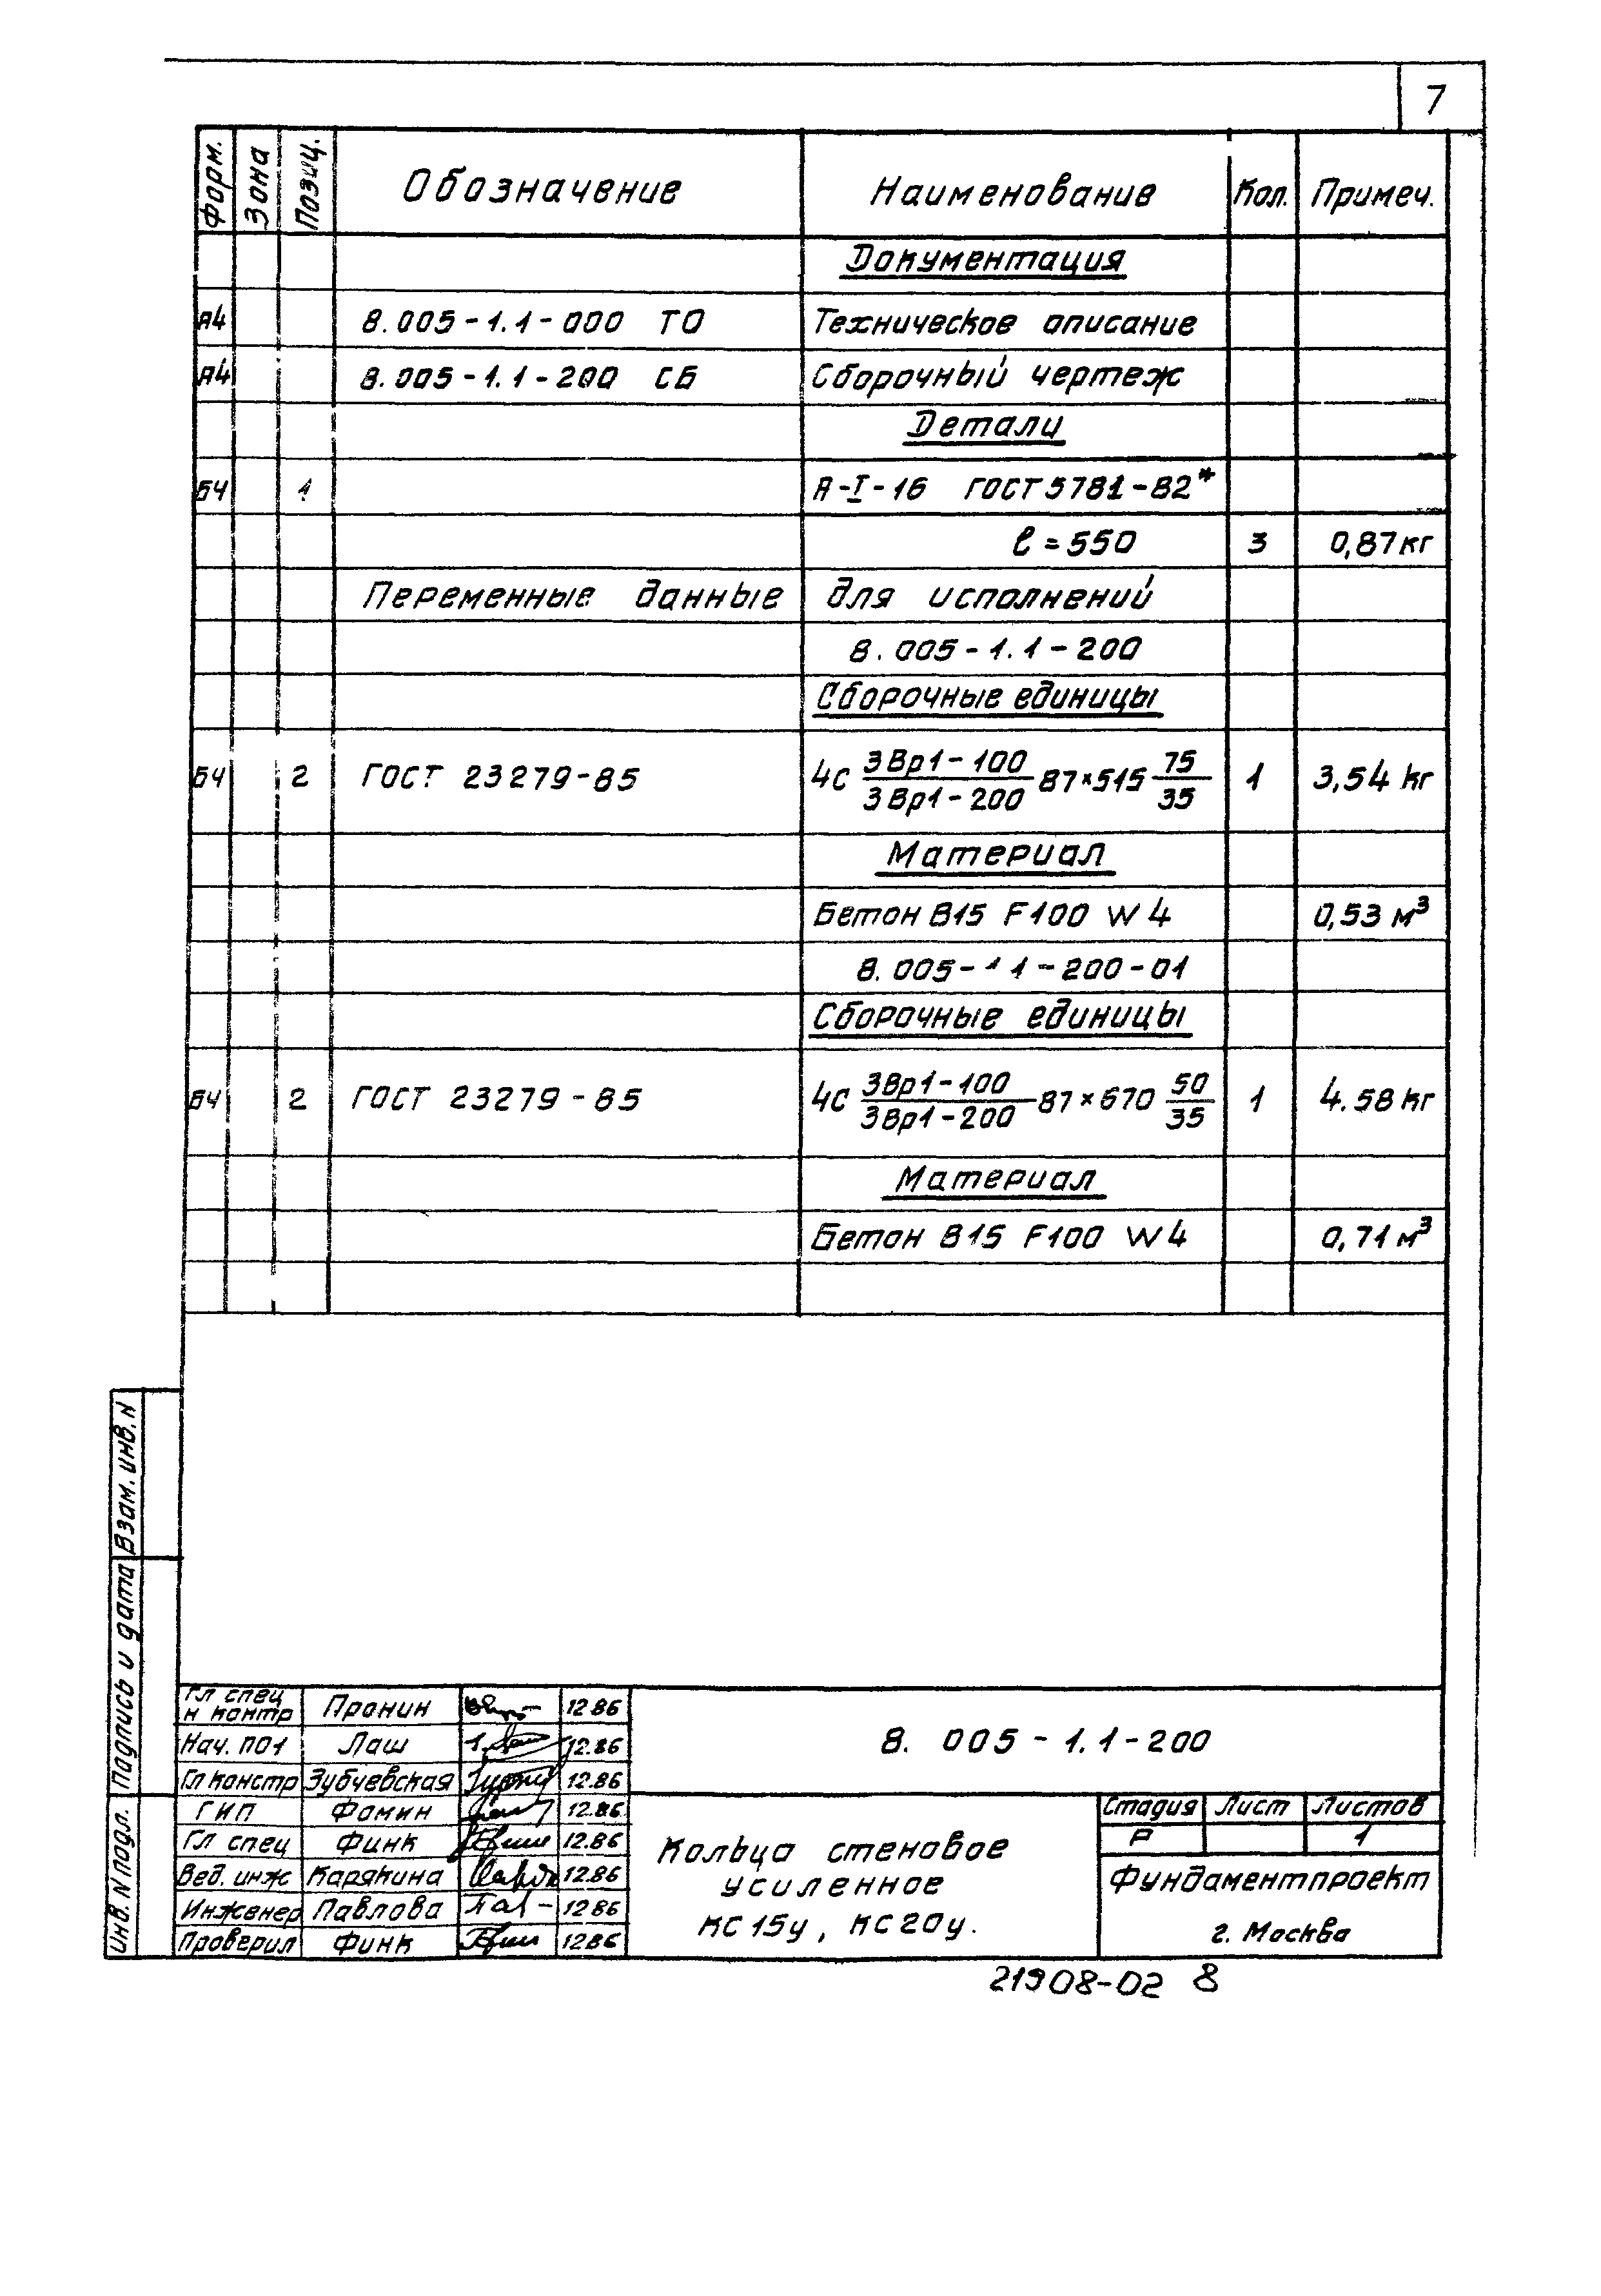 7
Форм. Зона Позиц. Обозначение Наименование Кол. Примеч.
Документация
А4 8.005-1.1-000 ТО Техническое описание
А4 8.005-1.1-200 СБ Сборочный чертеж
Детали
БЧ 1 А-I-16 ГОСТ 5781-82*
ℓ=550 3 0,87кг
Переменные данные для исполнений
8.005-1.1-200
Сборочные единицы
БЧ 2 ГОСТ 23279-85 4С 3Вр1-100/3Вр1-200 87×515 75/35 1 3,54 кг
Материал
Бетон В15 F100 W4 0,53 м³
8.005-1 1-200-01
Сборочные единицы
БЧ 2 ГОСТ 23279-85 4С 3Вр1-100/3Вр1-200 87×670 50/35 1 4.58 кг
Материал
Бетон В15 F100 W4 0,71 м³
Взам. инв. N
Подпись и дата
Инв. N подл.
Гл спец
н контр Пронин 12 86
Нач. ПО1 Лаш 12.86
Гл констр Зубчевская 12.86
ГИП Фомин 12.86
Гл спец Финк 12.86
Вед. инж Карякина 12.86
Инженер Павлова 12 86
Проверил Финк 12 86
8. 005-1.1-200
Кольцо стеновое
усиленное
КС15у, КС20у.
Стадия Лист Листов
Р 1
Фундаментпроект
г. Москва
21908-02 8